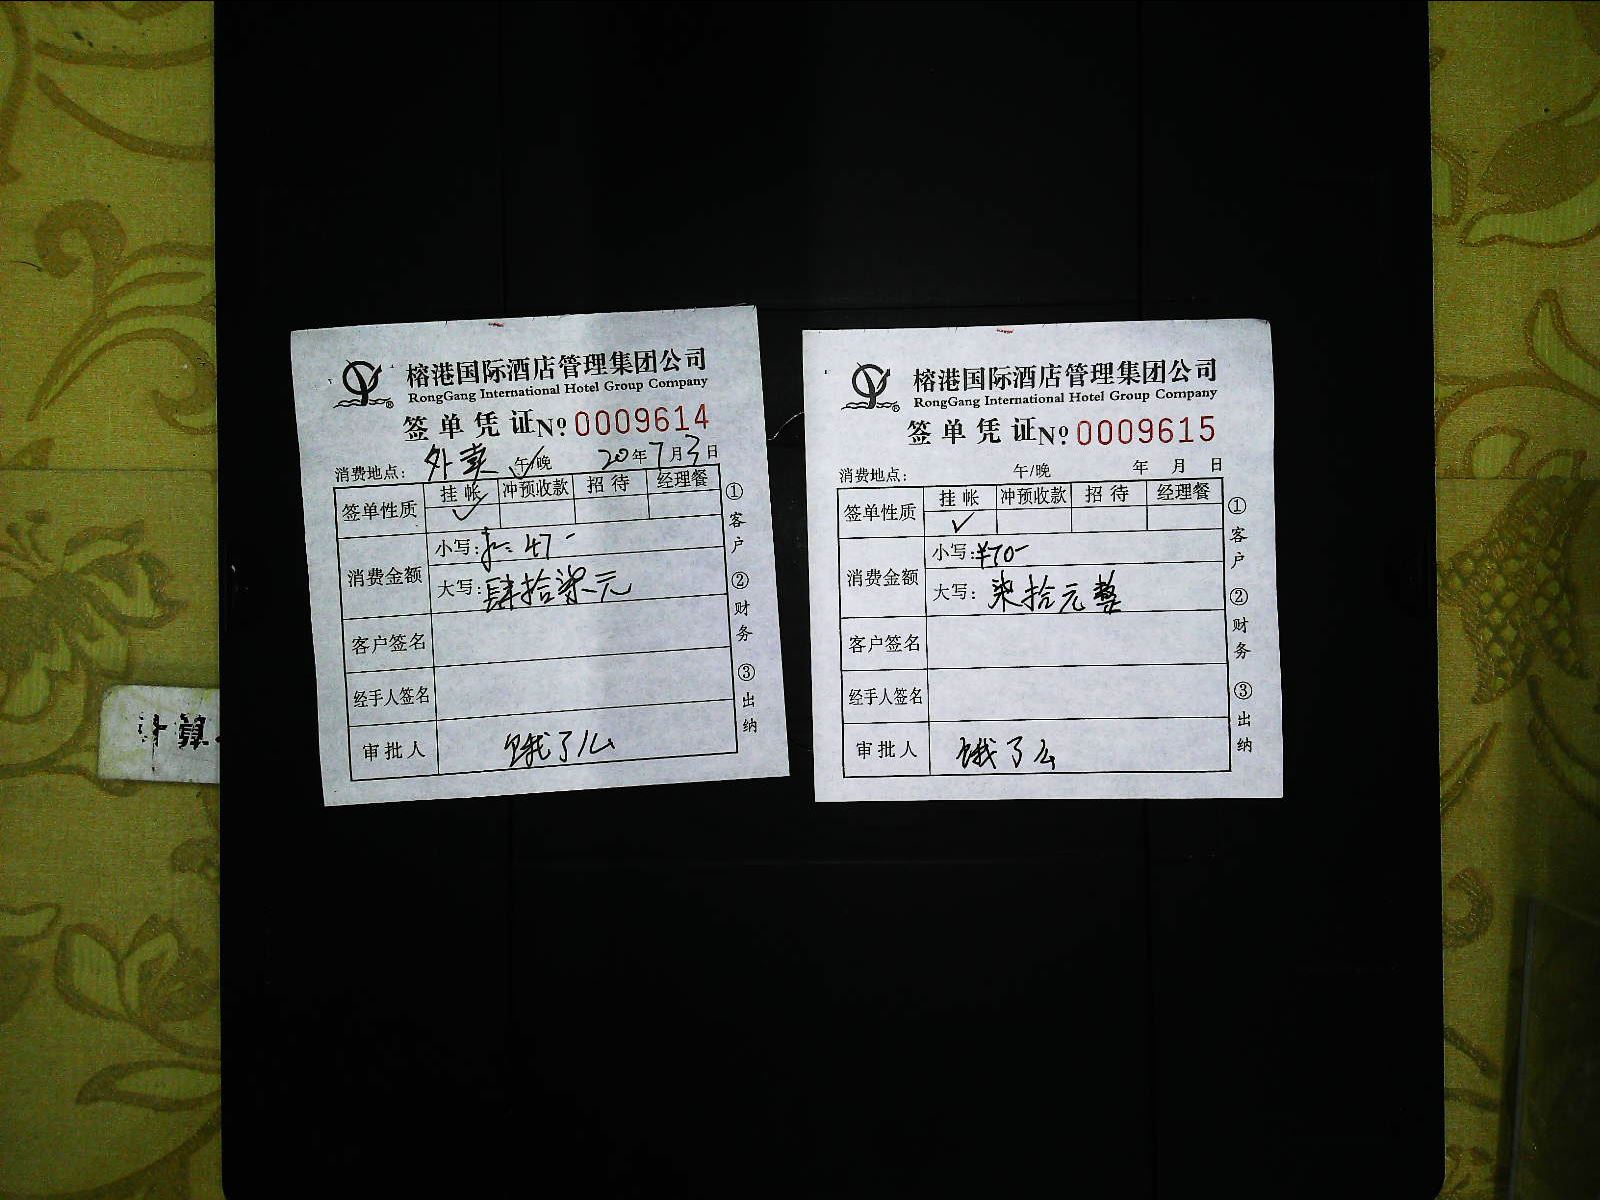 榕港国际酒店管理集团公司
RongGang International Hotel Group Company
签单凭证 No. 0009614
消费地点: 外卖 午/晚 20年7月3日
签单性质 挂帐 冲预收款 招待 经理餐
✓
消费金额
小写: 47-
大写: 肆拾柒元
客户签名
经手人签名
审批人 饿了么
①客户 ②财务 ③出纳
榕港国际酒店管理集团公司
RongGang International Hotel Group Company
签单凭证 No. 0009615
消费地点: 午/晚 年 月 日
签单性质 挂帐 冲预收款 招待 经理餐
✓
消费金额
小写: ¥70-
大写: 柒拾元整
客户签名
经手人签名
审批人 饿了么
①客户 ②财务 ③出纳
计算